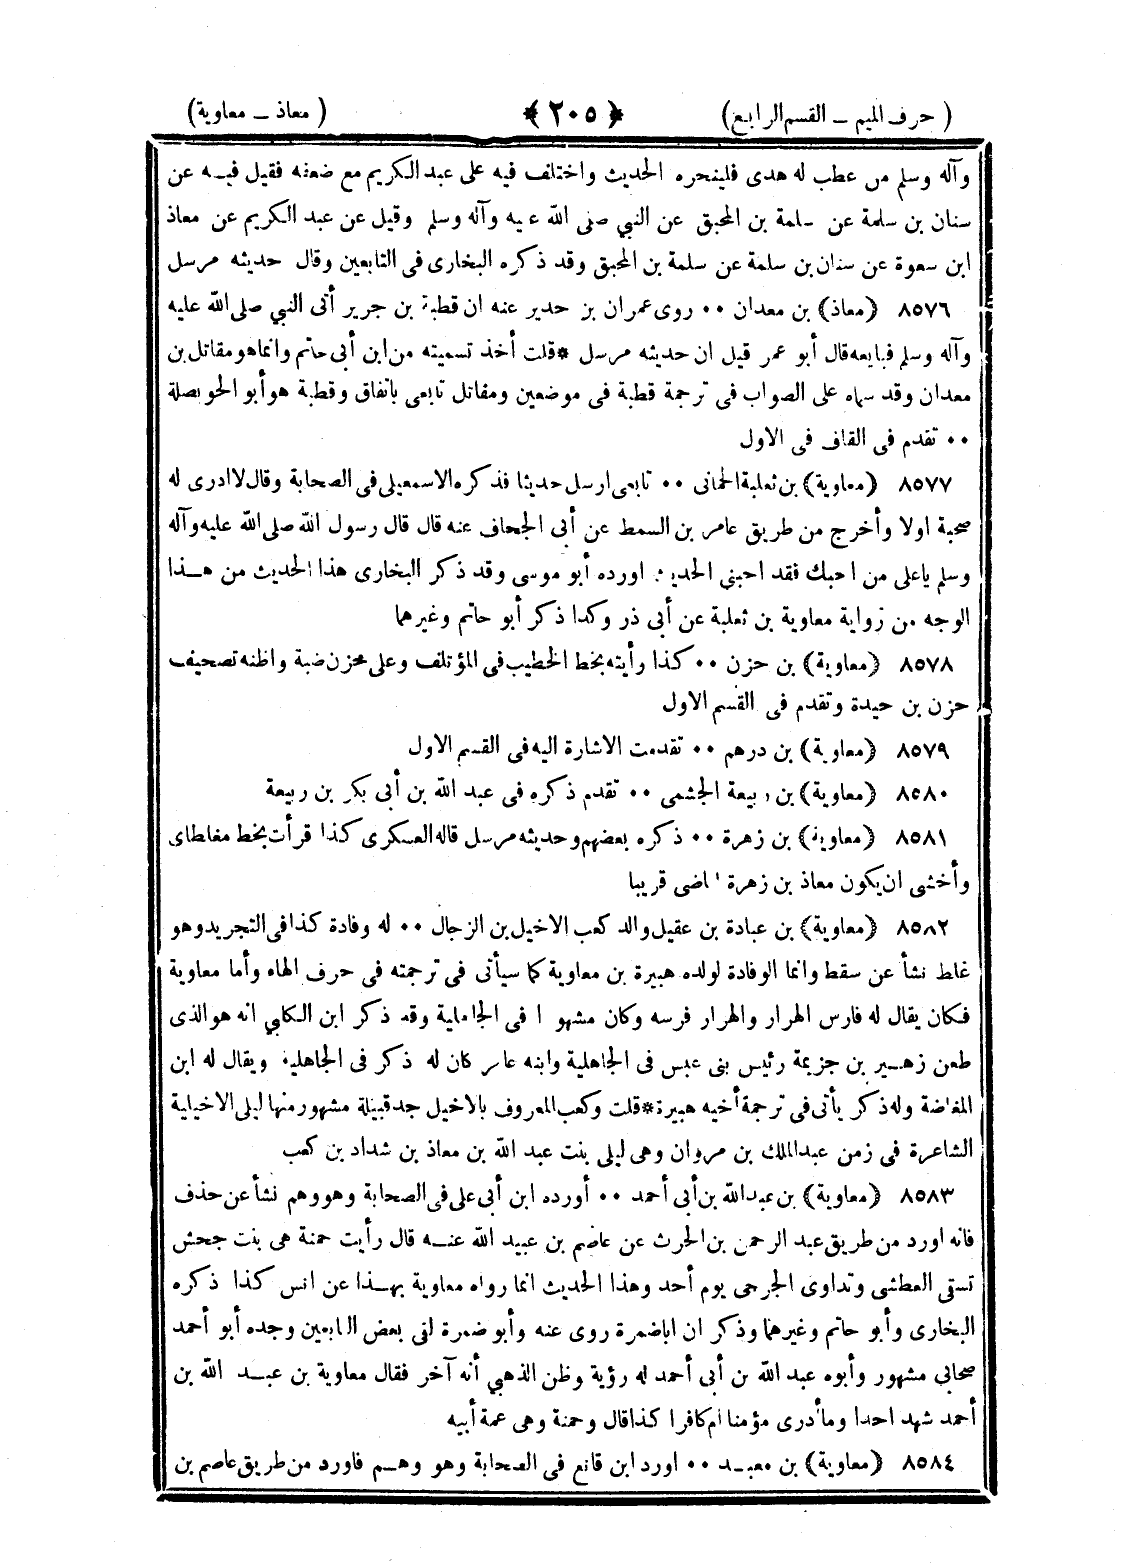 ( حرف الميم ـ القسم الرابع) ﴿ ٢٠٥ ﴾ ( معاذ ـ معاوية)
وآله وسلم من عطب له هدى فلينحره الحديث واختلف فيه على عبد الكريم مع ضعفه فقيل فيه عن
سنان بن سلمة عن سلمة بن المحبق عن النبي صلى الله عليه وآله وسلم وقيل عن عبد الكريم عن معاذ
ابن سعوة عن سنان بن سلمة عن سلمة بن المحبق وقد ذكره البخارى فى التابعين وقال حديثه مرسل
٨٥٧٦ (معاذ) بن معدان ٠٠ روى عمران بن حدير عنه ان قطبة بن جرير أتى النبي صلى الله عليه
وآله وسلم فبايعه قال أبو عمر قيل ان حديثه مرسل *قلت أخذ تسميته من ابن أبى حاتم وانما هو مقاتل بن
معدان وقد سماه على الصواب فى ترجمة قطبة فى موضعين ومقاتل تابعى باتفاق وقطبة هو أبو الحويصلة
٠٠ تقدم فى القاف فى الاول
٨٥٧٧ (معاوية) بن ثعلبة الحمانى ٠٠ تابعى ارسل حديثا فذكره الاسمعيلى فى الصحابة وقال لا ادرى له
صحبة اولا وأخرج من طريق عامر بن السمط عن أبى الجحاف عنه قال قال رسول الله صلى الله عليه وآله
وسلم ياعلى من احبك فقد احبني الحديث اورده أبو موسى وقد ذكر البخارى هذا الحديث من هذا
الوجه من زواية معاوية بن ثعلبة عن أبى ذر وكدا ذكر أبو حاتم وغيرهما
٨٥٧٨ (معاوية) بن حزن ٠٠ كذا رأيته بخط الخطيب فى المؤتلف وعلى محزن ضبة واظنه تصحيف
حزن بن حيدة وتقدم فى القسم الاول
٨٥٧٩ (معاوية) بن درهم ٠٠ تقدمت الاشارة اليه فى القسم الاول
٨٥٨٠ (معاوية) بن ربيعة الجشمى ٠٠ تقدم ذكره فى عبد الله بن أبى بكر بن ربيعة
٨٥٨١ (معاوية) بن زهرة ٠٠ ذكره بعضهم وحديثه مرسل قاله العسكرى كذا قرأت بخط مغلطاى
وأخشى ان يكون معاذ بن زهرة الماضى قريبا
٨٥٨٢ (معاوية) بن عبادة بن عقيل والد كعب الاخيل بن الرحال ٠٠ له وفادة كذا فى التجريد وهو
غلط نشأ عن سقط وانما الوفادة لولده هبيرة بن معاوية كما سيأتى فى ترجمته فى حرف الهاء وأما معاوية
فكان يقال له فارس الهرار والهرار فرسه وكان مشهورا فى الجاهلية وقد ذكر ابن الكلبي انه هو الذى
طعن زهير بن جزيمة رئيس بنى عبس فى الجاهلية وابنه عامر كان له ذكر فى الجاهلية ويقال له ابن
المفاضة وله ذكر يأتى فى ترجمة أخيه هبيرة*قلت وكعب المعروف بالاخيل جد قبيلة مشهور منها ليلى الاخيلية
الشاعرة فى زمن عبد الملك بن مروان وهى ليلى بنت عبد الله بن معاذ بن شداد بن كعب
٨٥٨٣ (معاوية) بن عبدالله بن أبى أحمد ٠٠ أورده ابن أبى على فى الصحابة وهو وهم نشأ عن حذف
فانه اورد من طريق عبد الرحمن بن الحرث عن عاصم بن عبيد الله عنه قال رأيت حمنة هى بنت جحش
تسقى العطشى وتداوى الجرحى يوم أحد وهذا الحديث انما رواه معاوية بهذا عن انس كذا ذكره
البخارى وأبو حاتم وغيرهما وذكر ان اباضمرة روى عنه وأبو ضمرة لقى بعض التابعين وجده أبو أحمد
صحابي مشهور وأبوه عبد الله بن أبى أحمد له رؤية وظن الذهبي أنه آخر فقال معاوية بن عبد الله بن
أحمد شهد احدا وما أدرى مؤمنا ام كافرا كذا قال وحمنة وهى عمة أبيه
٨٥٨٤ (معاوية) بن معبد ٠٠ اورد ابن قانع فى الصحابة وهو وهم فاورد من طريق عاصم بن